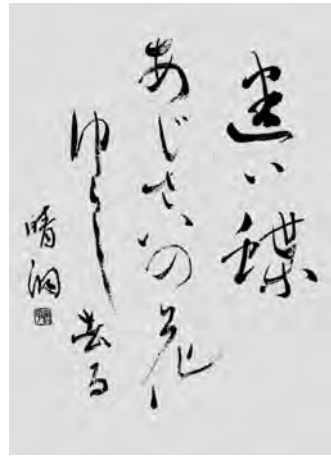 迷い蝶
あじさいの花
ゆらし去る